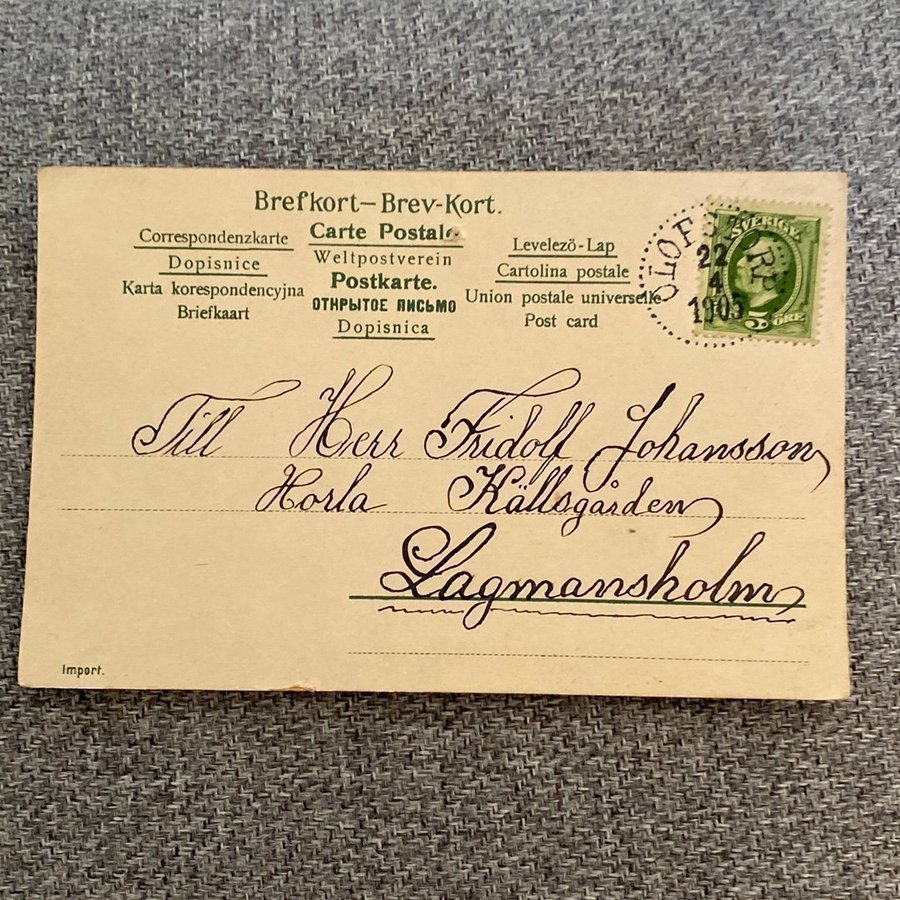 Brefkort–Brev-Kort.
Correspondenzkarte
Dopisnice
Karta korespondencyjna
Briefkaart
Carte Postale
Weltpostverein
Postkarte.
ОТКРЫТОЕ ПИСЬМО
Dopisnica
Levelező-Lap
Cartolina postale
Union postale universelle
Post card
SVERIGE
5 ÖRE
22
4
1905
Till Herr Fridolf Johansson
Horla Källsgården
Lagmansholm
Import.